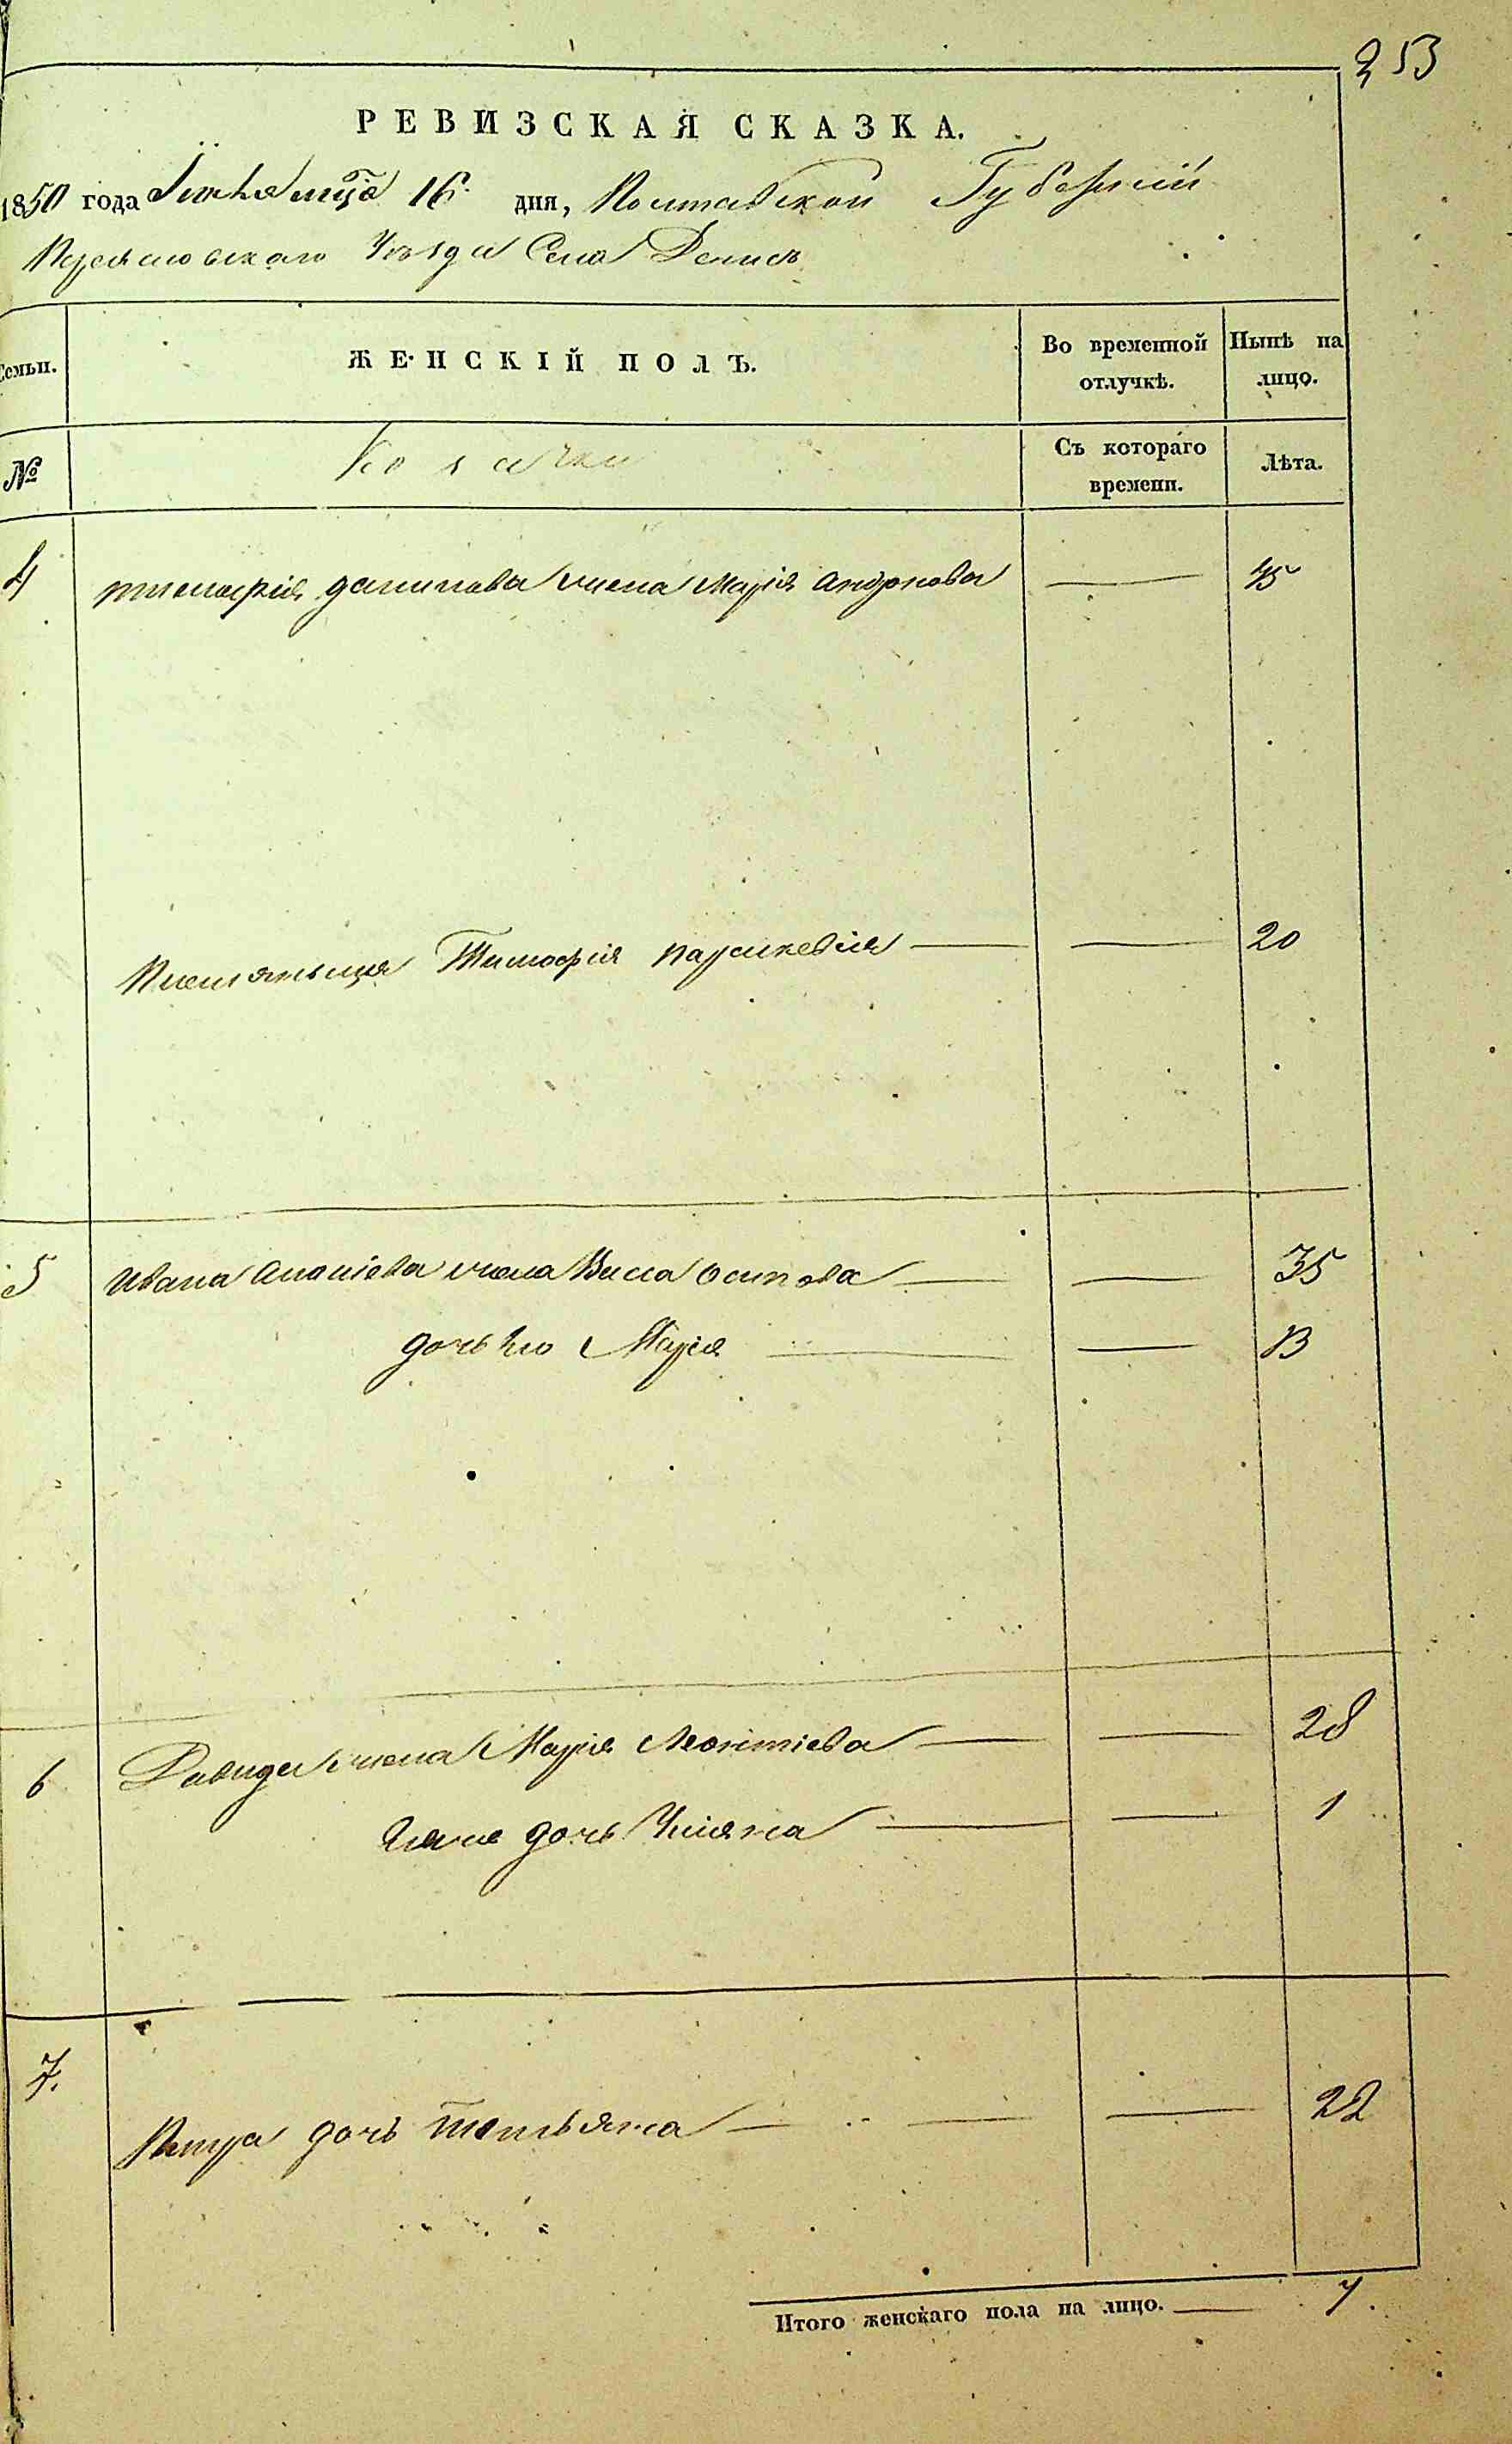 253
РЕВИЗСКАЯ СКАЗКА.
1850 года Іюня мца 16 дня, Полтавской Губерніи
Переяславскаго Уѣзда Села Денисъ
Семьи.
ЖЕНСКІЙ ПОЛЪ.
Во временной отлучкѣ.
Нынѣ на лицо.
№
Козачки
Съ котораго времени.
Лѣта.
4 тимофѣя данилова жена Марія андреева — 45
Племяница Тимофея параскевія — — 20
5 Ивана Ананіева жена Васса осипова — — 35
дочь его Марія — — 13
6 Давида жена Марія Леонтіева — — 28
дочь Уліяна — — 1
7. Петра дочь татьяна — — 22
Итого женскаго пола на лицо. — 7.